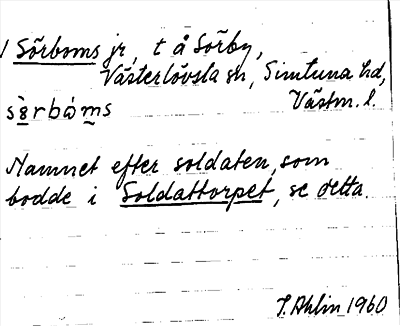 / Sörboms jr, t å Sörby,
Västerlövsta sn, Simtuna hd,
Västm. l.
sö̀rbòms
Namnet efter soldaten, som
bodde i Soldattorpet, se detta.
T. Ahlin 1960